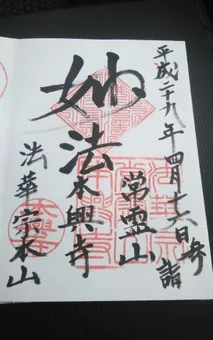 平成二十九年四月十六日参詣
常霊山
妙法
本興寺
法華宗本山